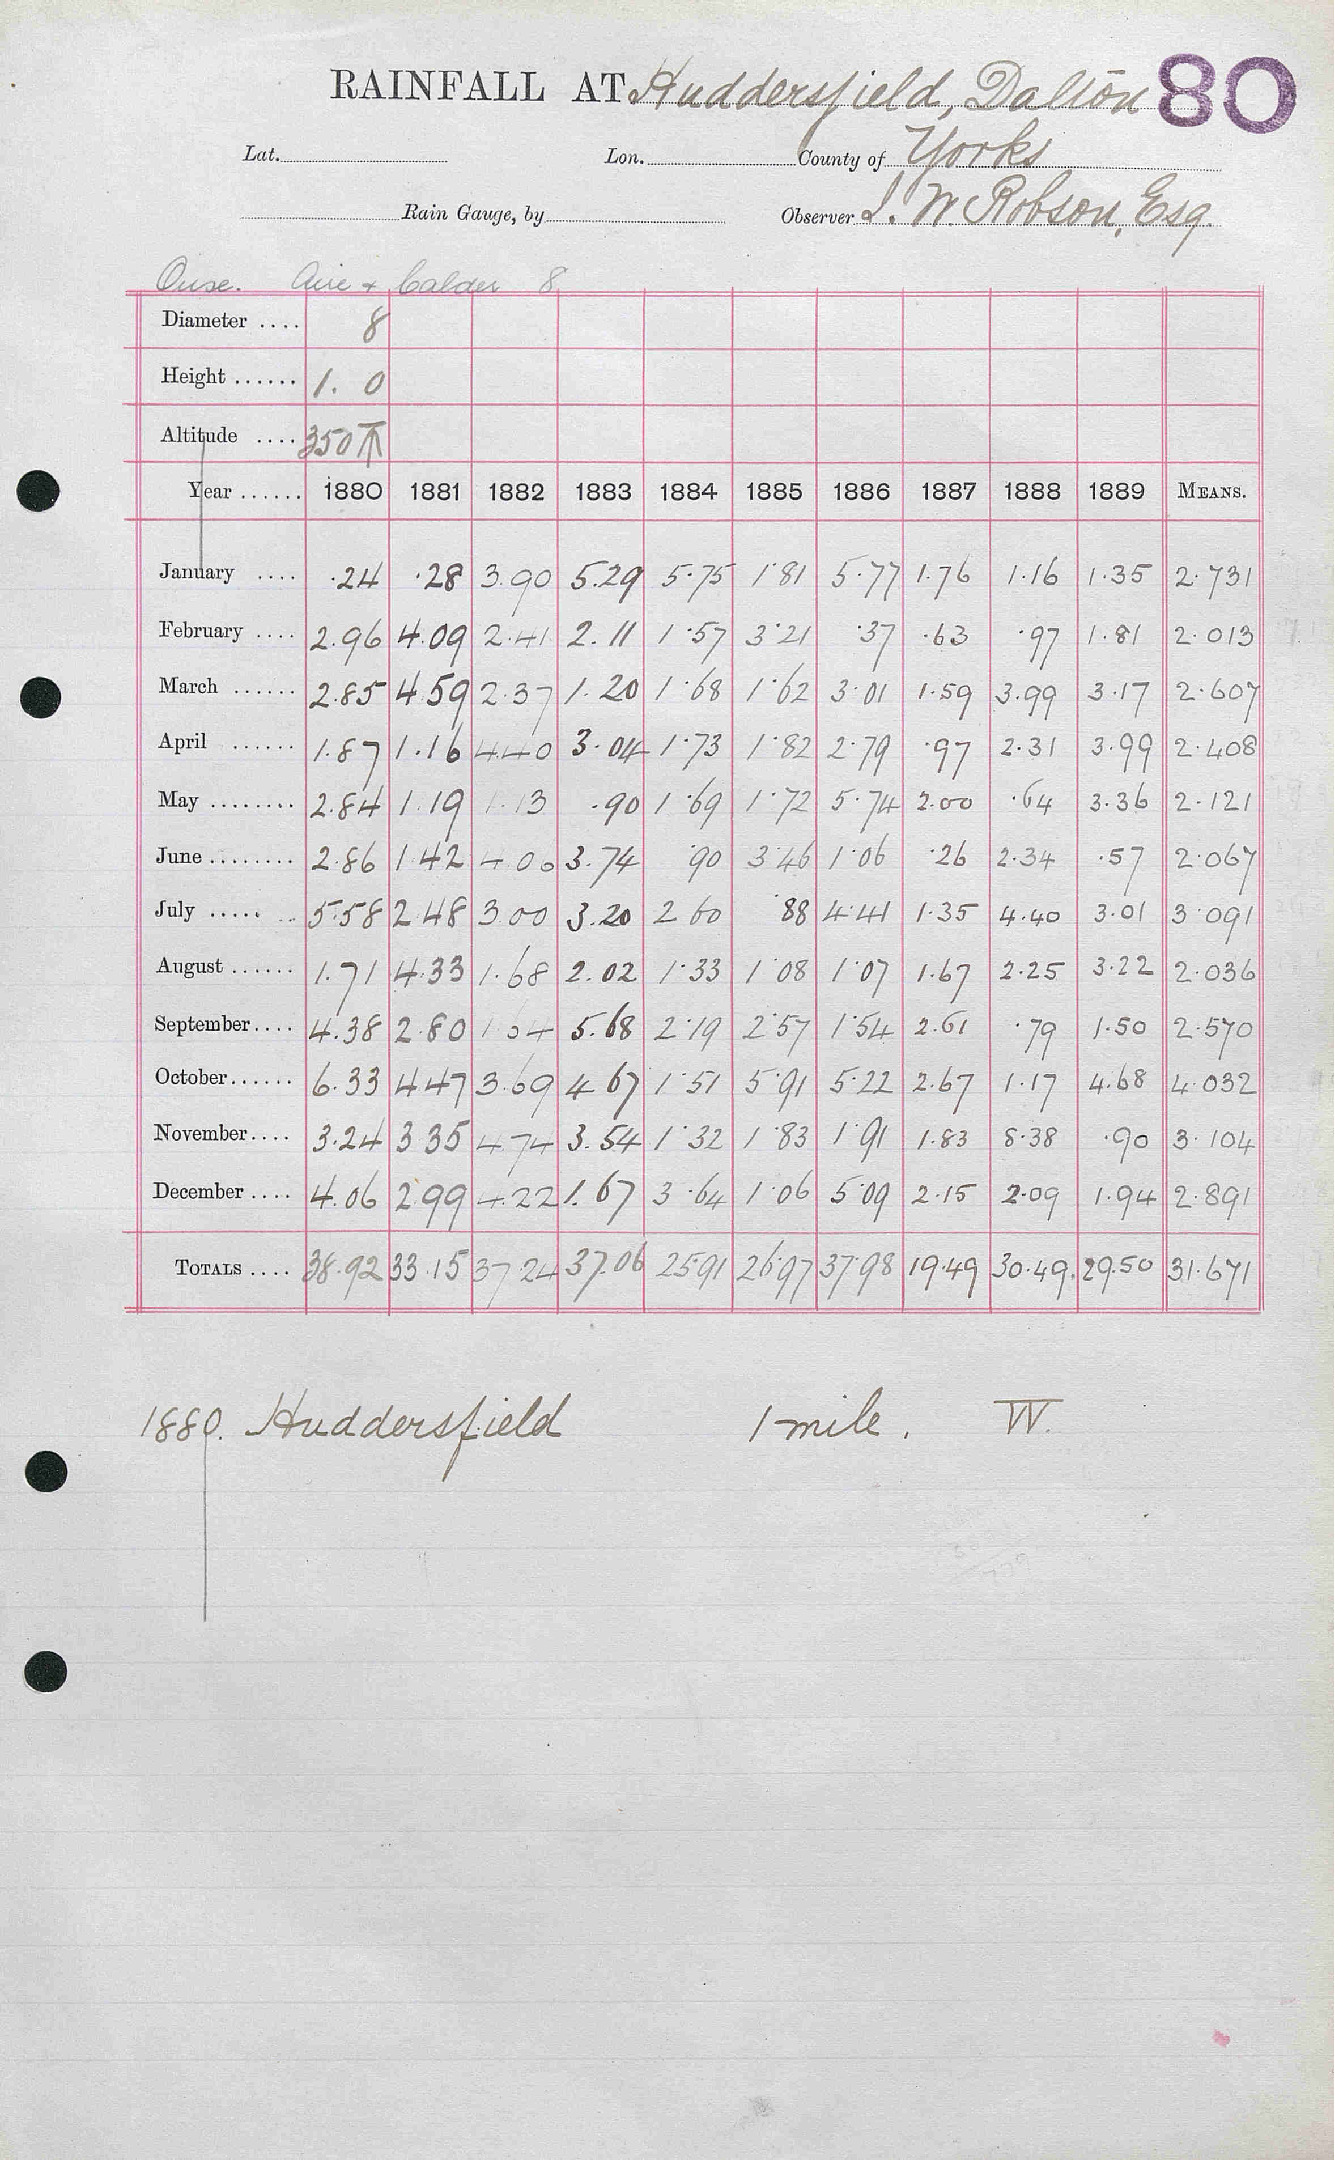 RAINFALL AT Huddersfield, Dalton 80
Lat. Lon. County of Yorks
Rain Gauge, by Observer J. W. Robson, Esq.
Ouse. Aire + Calder 8
Diameter .... 8
Height ...... 1. 0
Altitude .... 350
Year ...... 1880 1881 1882 1883 1884 1885 1886 1887 1888 1889 MEANS.
January .... .24 .28 3.90 5.29 5.75 1.81 5.77 1.76 1.16 1.35 2.731
February .... 2.96 4.09 2.41 2.11 1.57 3.21 .37 .63 .97 1.81 2.013
March ...... 2.85 4.59 2.37 1.20 1.68 1.62 3.01 1.59 3.99 3.17 2.607
April ...... 1.87 1.16 4.40 3.04 1.73 1.82 2.79 .97 2.31 3.99 2.408
May ........ 2.84 1.19 1.13 .90 1.69 1.72 5.74 2.00 .64 3.36 2.121
June ........ 2.86 1.42 4.06 3.74 .90 3.46 1.06 .26 2.34 .57 2.067
July ..... 5.58 2.48 3.00 3.20 2.60 .88 4.41 1.35 4.40 3.01 3.091
August ...... 1.71 4.33 1.68 2.02 1.33 1.08 1.07 1.67 2.25 3.22 2.036
September .... 4.38 2.80 1.64 5.68 2.19 2.57 1.54 2.61 .79 1.50 2.570
October ...... 6.33 4.47 3.69 4.67 1.51 5.91 5.22 2.67 1.17 4.68 4.032
November .... 3.24 3.35 4.74 3.54 1.32 1.83 1.91 1.83 8.38 .90 3.104
December .... 4.06 2.99 4.22 1.67 3.64 1.06 5.09 2.15 2.09 1.94 2.891
TOTALS .... 38.92 33.15 37.24 37.06 25.91 26.97 37.98 19.49 30.49 29.50 31.671
1880. Huddersfield 1 mile. W.